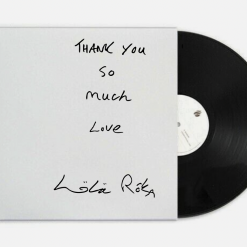 THANK YOU
So
Much
Love
Lölä Rôka